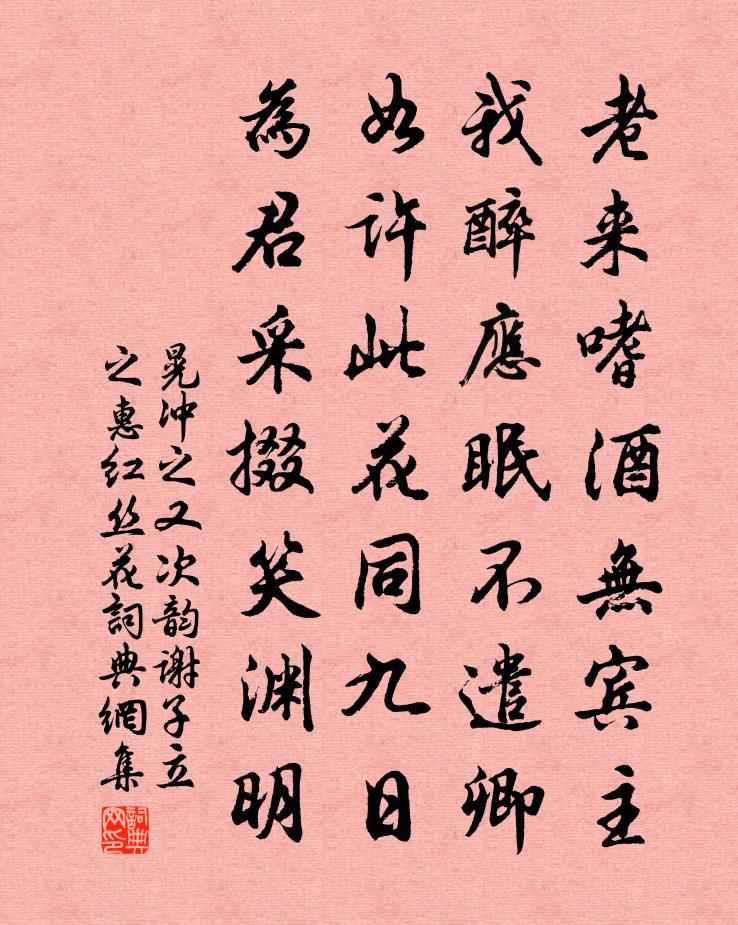 老来嗜酒無宾主
我醉應眠不遣卿
如许此花同九日
為君采掇笑渊明
晁冲之又次韵谢子立
之惠红丝花詞典網集
詞典网印